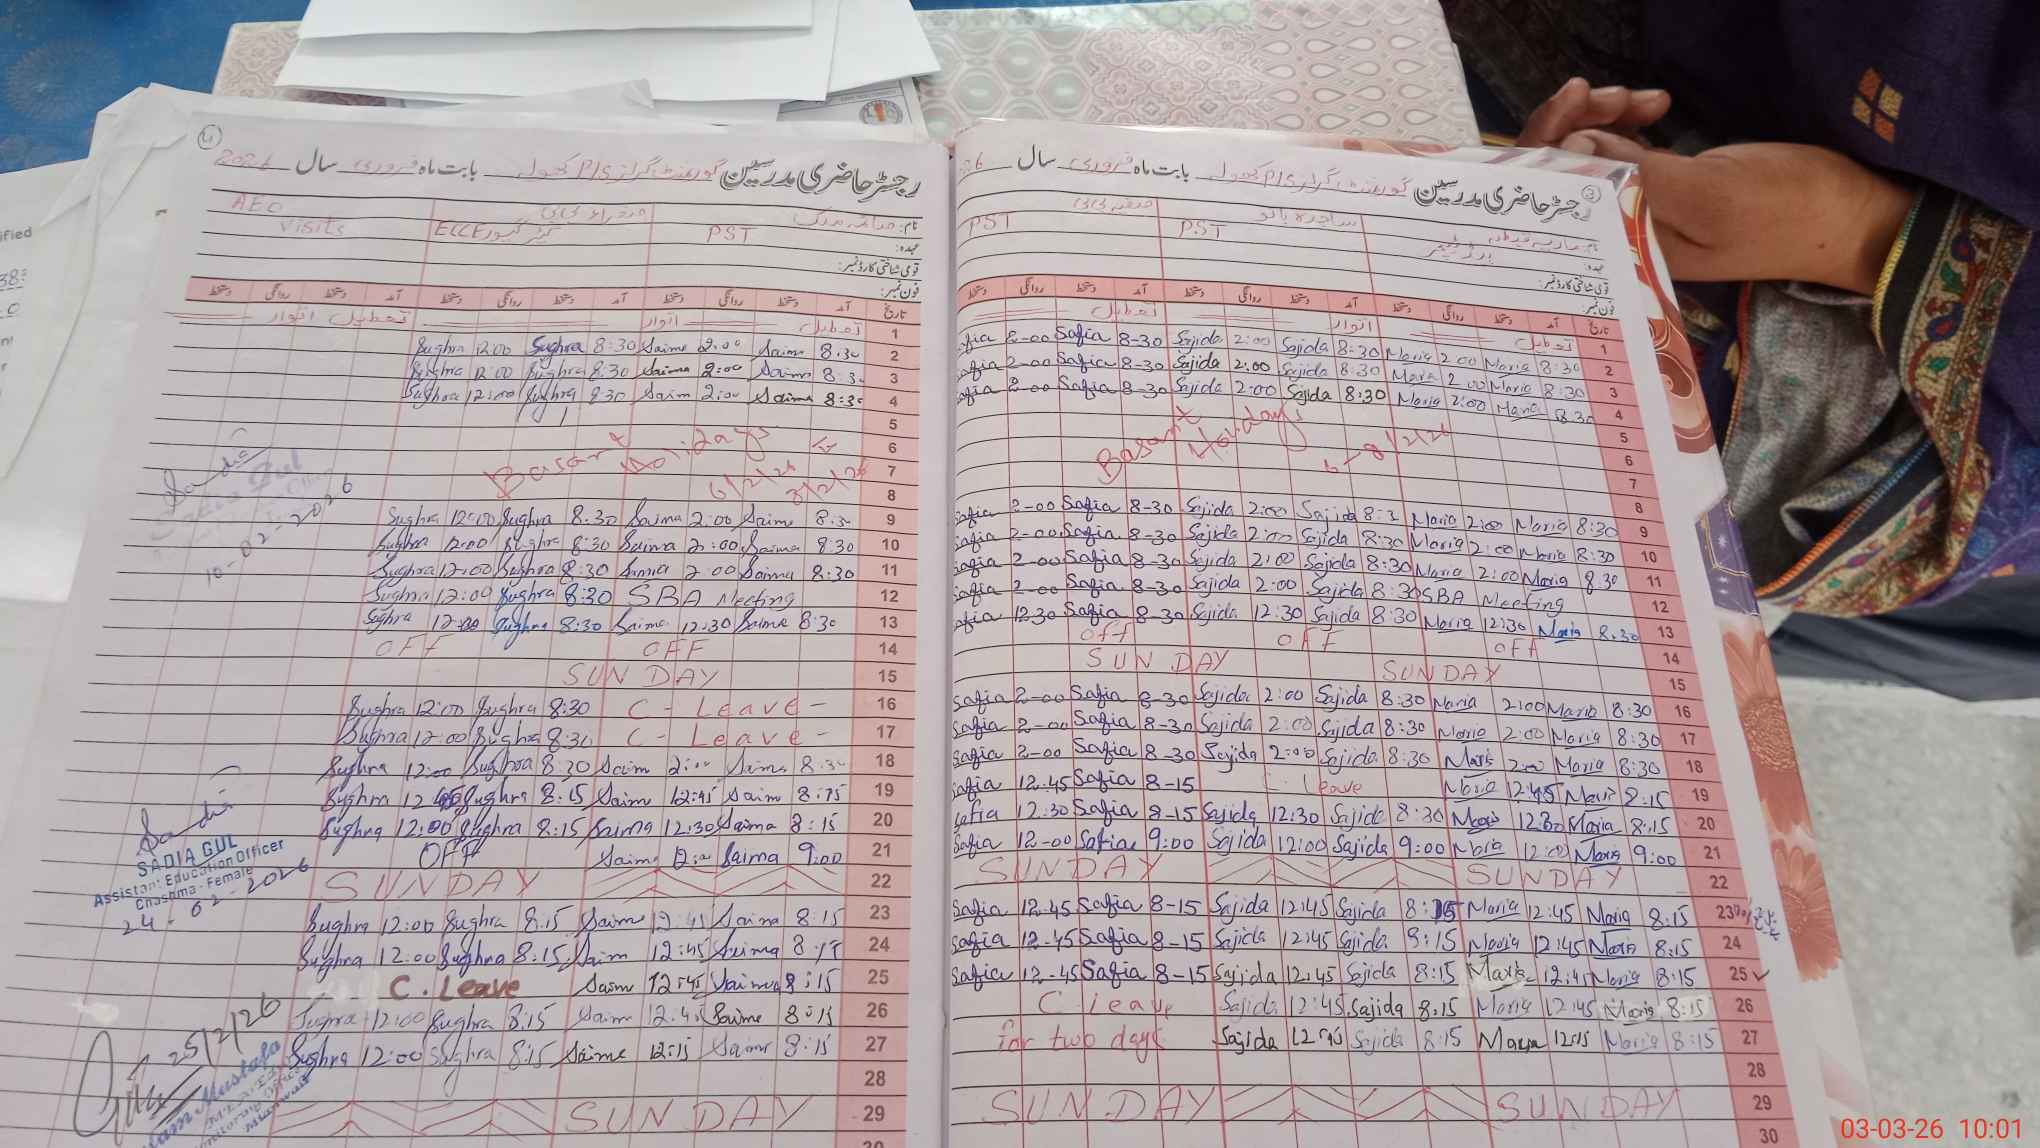 رجسٹر حاضری مدرسین گورنمنٹ گرلز P/S بابت ماہ فروری سال 2026
نام: صائمہ
AEO
Visits
ECCE کیئر گیور
PST
عہدہ:
قومی شناختی کارڈ نمبر:
فون نمبر:
دستخط روانگی دستخط آمد دستخط روانگی دستخط آمد دستخط روانگی دستخط آمد تاریخ
تعطیل اتوار اتوار تعطیل 1
Sughra 12:00 Sughra 8:30 Saima 2:00 Saima 8:30 2
Sughra 12:00 Sughra 8:30 Saima 2:00 Saima 8:3 3
Sughra 12:00 Sughra 8:30 Saim 2:00 Saima 8:30 4
5
Basant Holidays 6
6/2/26 8/2/26 7
8
Sughra 12:00 Sughra 8:30 Saima 2:00 Saim 8:3 9
Sughra 12:00 Sughra 8:30 Saima 2:00 Saima 8:30 10
Sughra 12:00 Sughra 8:30 Saima 2:00 Saima 8:30 11
Sughra 12:00 Sughra 8:30 SBA Meeting 12
Sughra 12:00 Sughra 8:30 Saima 12:30 Saima 8:30 13
OFF OFF 14
SUNDAY 15
Sughra 12:00 Sughra 8:30 C - Leave - 16
Sughra 12:00 Sughra 8:30 C - Leave - 17
Sughra 12:00 Sughra 8:30 Saim 2:00 Saima 8:30 18
Sughra 12 Sughra 8:15 Saim 12:45 Saim 8:15 19
Sughra 12:00 Sughra 8:15 Saima 12:30 Saima 8:15 20
OFF Saima 12:00 Saima 9:00 21
SUNDAY 22
Sughra 12:00 Sughra 8:15 Saima 12:45 Saima 8:15 23
Sughra 12:00 Sughra 8:15 Saim 12:45 Saima 8:15 24
C. Leave Saim 12:45 Saima 8:15 25
Sughra 12:00 Sughra 8:15 Saim 12:45 Saima 8:15 26
Sughra 12:00 Sughra 8:15 Saima 12:15 Saima 8:15 27
28
SUNDAY 29
30
Sadia
Sadia Gul
10-02-2026
Sadia
SADIA GUL
Assistant Education Officer
Chashma - Female
24-02-2026
25/2/26
Mustafa
رجسٹر حاضری مدرسین گورنمنٹ گرلز P/S بابت ماہ فروری سال 26
نام:
ساجدہ بانو
صفیہ بی بی
PST
PST
ہیڈ ٹیچر
عہدہ:
قومی شناختی کارڈ نمبر:
فون نمبر:
دستخط روانگی دستخط آمد دستخط روانگی دستخط آمد دستخط روانگی دستخط آمد تاریخ
تعطیل اتوار تعطیل 1
Safia 2-00 Safia 8-30 Sajida 2:00 Sajida 8:30 Maria 2:00 Maria 8:30 2
Safia 2-00 Safia 8-30 Sajida 2:00 Sajida 8:30 Maria 2:00 Maria 8:30 3
Safia 2-00 Safia 8-30 Sajida 2:00 Sajida 8:30 Maria 2:00 Maria 8:30 4
5
Basant Holidays 6 - 8/2/26 6
7
8
Safia 2-00 Safia 8-30 Sajida 2:00 Sajida 8:3 Maria 2:00 Maria 8:30 9
Safia 2-00 Safia 8-30 Sajida 2:00 Sajida 8:30 Maria 2:00 Maria 8:30 10
Safia 2-00 Safia 8-30 Sajida 2:00 Sajida 8:30 Maria 2:00 Maria 8:30 11
Safia 2-00 Safia 8-30 Sajida 2:00 Sajida 8:30 SBA Meeting 12
Safia 12.30 Safia 8-30 Sajida 12:30 Sajida 8:30 Maria 12:30 Maria 8:30 13
Off OFF OFF 14
SUNDAY SUNDAY 15
Safia 2-00 Safia 8-30 Sajida 2:00 Sajida 8:30 Maria 2:00 Maria 8:30 16
Safia 2-00 Safia 8-30 Sajida 2:00 Sajida 8:30 Maria 2:00 Maria 8:30 17
Safia 2-00 Safia 8-30 Sajida 2:00 Sajida 8:30 Maria 2:00 Maria 8:30 18
Safia 12.45 Safia 8-15 C Leave Maria 12:45 Maria 8:15 19
Safia 12:30 Safia 8-15 Sajida 12:30 Sajida 8:30 Maria 12:30 Maria 8:15 20
Safia 12-00 Safia 9:00 Sajida 12:00 Sajida 9:00 Maria 12:00 Maria 9:00 21
SUNDAY SUNDAY 22
Safia 12.45 Safia 8-15 Sajida 12:45 Sajida 8:15 Maria 12:45 Maria 8:15 23
Safia 12-45 Safia 8-15 Sajida 12:45 Sajida 8:15 Maria 12:45 Maria 8:15 24
Safia 12-45 Safia 8-15 Sajida 12:45 Sajida 8:15 Maria 12:45 Maria 8:15 25
C Leave Sajida 12:45 Sajida 8:15 Maria 12:45 Maria 8:15 26
for two days Sajida 12:45 Sajida 8:15 Maria 12:15 Maria 8:15 27
28
SUNDAY SUNDAY 29
30
03-03-26 10:01